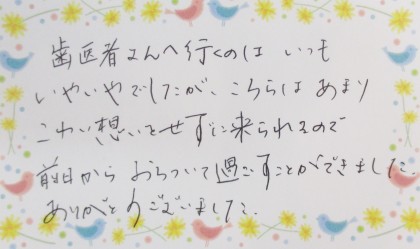 歯医者さんへ行くのは いつも
いやいやでしたが、こちらは あまり
こわい想いをせずに来られるので
前日から おちついて過ごすことができました。
ありがとうございました。